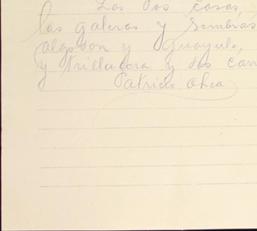 Las dos casas,
las galeras y siembras
algodon y guayule,
y trilladora y dos carr
Patricio Ochoa